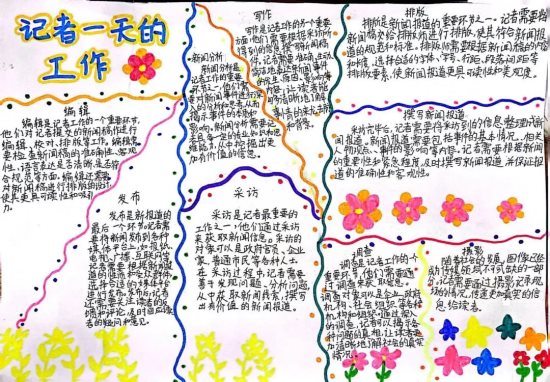 记者一天的
工作
编辑
编辑是记者工作的一个重要环节,
他们对记者提交的新闻稿件进行
编辑、校对、排版等工作。编辑需
要检查新闻稿的准确性、客观
性、语言表达是否清晰、是否符
合规范等方面。编辑还需要
对新闻稿进行排版的设计,
使其更具可读性和吸引
力。
发布
发布是新报道的
最后一个环节。记者需
要将新闻发布到各种
媒体平台上,如报纸、
电视、广播、互联网等
记者需要根据新闻报
道的性质和受众群体
选择合适的媒体平
台进行发布。发布后,记者
还需要关注读者的反
馈和评论,及时回应读
者的疑问和意见。
新闻分析
新闻分析是记
者工作的重要环
节之一,他们需要
对新闻事件进行深
入的分析和思考,从而
揭示事件的本质和
影响。新闻分析需要记
者具备一定的专业知识和思
维能力,从中挖掘出更
加有价值的信息。
写作
写作是记者工作的另一个重要
方面,他们需要根据采访所
得到的信息撰写新闻稿
件。记者需要准确、生动、
简洁地表达新闻事件
的发生、原因、影响等
内容,让读者能
采访
采访是记者最重要的
工作之一,他们通过采访
来获取新闻信息。采访的
对象可以是政府官员、企业
家、普通市民等各种人士。
在采访过程中,记者需要
善于发现问题、分析问题,
从中获取新闻素材,撰写
出有价值的新闻报道。
排版
排版是新闻报道的重要环节之一,记者需要将
新闻稿交给排版师进行排版,使其符合新闻报
道的规范和标准。排版师需要根据新闻稿的内容
和性质,选择合适的字体、字号、行距、段落间距等
排版要素,使新闻报道更具可读性和美观度。
撰写新闻报道
采访完毕后,记者需要将采访到的信息整理成新
闻报道。新闻报道需要包括事件的基本情况、相关
人物观点、事件的影响等内容。记者需要根据新闻
的重要性和紧急程度,及时撰写新闻报道并保证报
道的准确性和客观性。
调查
调查是记者工作的一个
重要环节,他们需要通
过调查来获取信息。
调查对象可以是企业、政府
机构、社会组织等各种
机构和组织。通过深入
的调查,记者可以揭示各
种问题的真相,让读者更
加清晰地了解社会的真实
情况。
摄影
随着社会的发展,图像已经
成为传媒领域不可或缺的一部
分,记者需要通过摄影记录现
场的情况,传递更加真实的信
息给读者。